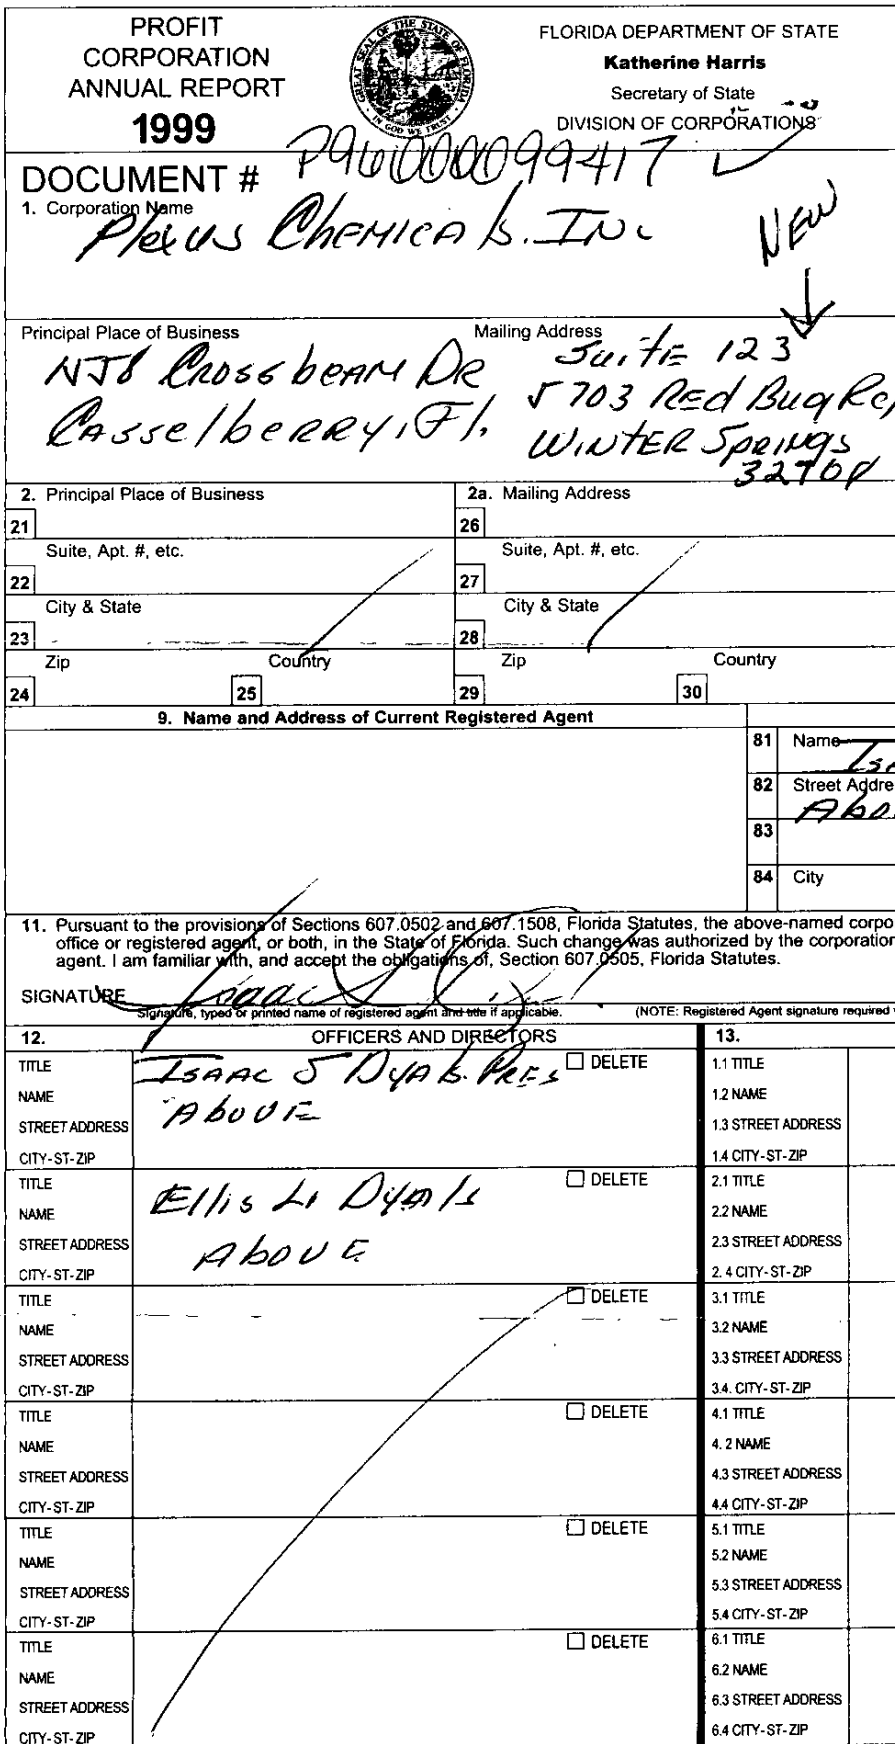 PROFIT
CORPORATION
ANNUAL REPORT
1999
GREAT SEAL OF THE STATE OF FLORIDA
IN GOD WE TRUST
FLORIDA DEPARTMENT OF STATE
Katherine Harris
Secretary of State
DIVISION OF CORPORATIONS
DOCUMENT # P96000099417
1. Corporation Name
Plexus Chemicals. Inc
NEW
Principal Place of Business
Mailing Address
Crossbeam DR
Casselberry, Fl.
Suite 123
5703 Red Bug
Winter Springs
32708
2. Principal Place of Business
2a. Mailing Address
21
26
Suite, Apt. #, etc.
Suite, Apt. #, etc.
22
27
City & State
City & State
23
28
Zip
Country
Zip
Country
24
25
29
30
9. Name and Address of Current Registered Agent
81 Name
82 Street Addre
83
84 City
11. Pursuant to the provisions of Sections 607.0502 and 607.1508, Florida Statutes, the above-named corpo
office or registered agent, or both, in the State of Florida. Such change was authorized by the corporation
agent. I am familiar with, and accept the obligations of, Section 607.0505, Florida Statutes.
SIGNATURE Isaac
Signature, typed or printed name of registered agent and title if applicable.
(NOTE: Registered Agent signature required
12.
OFFICERS AND DIRECTORS
13.
TITLE
NAME
STREET ADDRESS
CITY-ST-ZIP
Isaac J Dyals. Pres
Above
DELETE
1.1 TITLE
1.2 NAME
1.3 STREET ADDRESS
1.4 CITY-ST-ZIP
TITLE
NAME
STREET ADDRESS
CITY-ST-ZIP
Ellis L. Dyals
Above
DELETE
2.1 TITLE
2.2 NAME
2.3 STREET ADDRESS
2.4 CITY-ST-ZIP
TITLE
NAME
STREET ADDRESS
CITY-ST-ZIP
DELETE
3.1 TITLE
3.2 NAME
3.3 STREET ADDRESS
3.4. CITY-ST-ZIP
TITLE
NAME
STREET ADDRESS
CITY-ST-ZIP
DELETE
4.1 TITLE
4.2 NAME
4.3 STREET ADDRESS
4.4 CITY-ST-ZIP
TITLE
NAME
STREET ADDRESS
CITY-ST-ZIP
DELETE
5.1 TITLE
5.2 NAME
5.3 STREET ADDRESS
5.4 CITY-ST-ZIP
TITLE
NAME
STREET ADDRESS
CITY-ST-ZIP
DELETE
6.1 TITLE
6.2 NAME
6.3 STREET ADDRESS
6.4 CITY-ST-ZIP